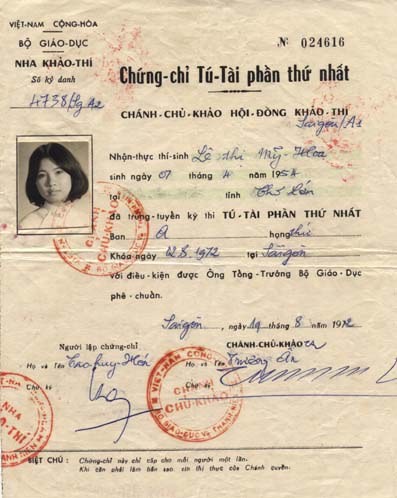 VIỆT-NAM CỘNG-HÒA
BỘ GIÁO-DỤC
NHA KHẢO-THÍ
Số ký danh
4738/Sg A2
№ 024616
Chứng-chỉ Tú-Tài phần thứ nhất
CHÁNH-CHỦ-KHẢO HỘI-ĐỒNG KHẢO-THÍ
Saigon/A1
Nhận-thực thí-sinh Lê thị Mỹ-Hoa
sinh ngày 07 tháng 4 năm 1954
tại tỉnh
đã trúng-tuyển kỳ thi TÚ-TÀI PHẦN THỨ NHẤT
Ban A hạng thứ
Khóa-ngày 02.8.1972 tại Saigon
với điều-kiện được Ông Tổng-Trưởng Bộ Giáo-Dục
phê-chuẩn.
Saigon, ngày 19 tháng 8 năm 1972
Người lập chứng-chỉ
CHÁNH-CHỦ-KHẢO
Họ và Tên Cao-huy-
Họ và Tên Trương Ân
Chữ ký
Chữ ký
CHÁNH
CHỦ-KHẢO
VIỆT-NAM CỘNG
CHỦ-KHẢO
NHA
KHẢO-THÍ
BIỆT CHÚ: Chứng-chỉ này chỉ cấp cho mỗi người một lần.
Khi cần phải làm bản sao, xin thị thực của Chánh quyền.